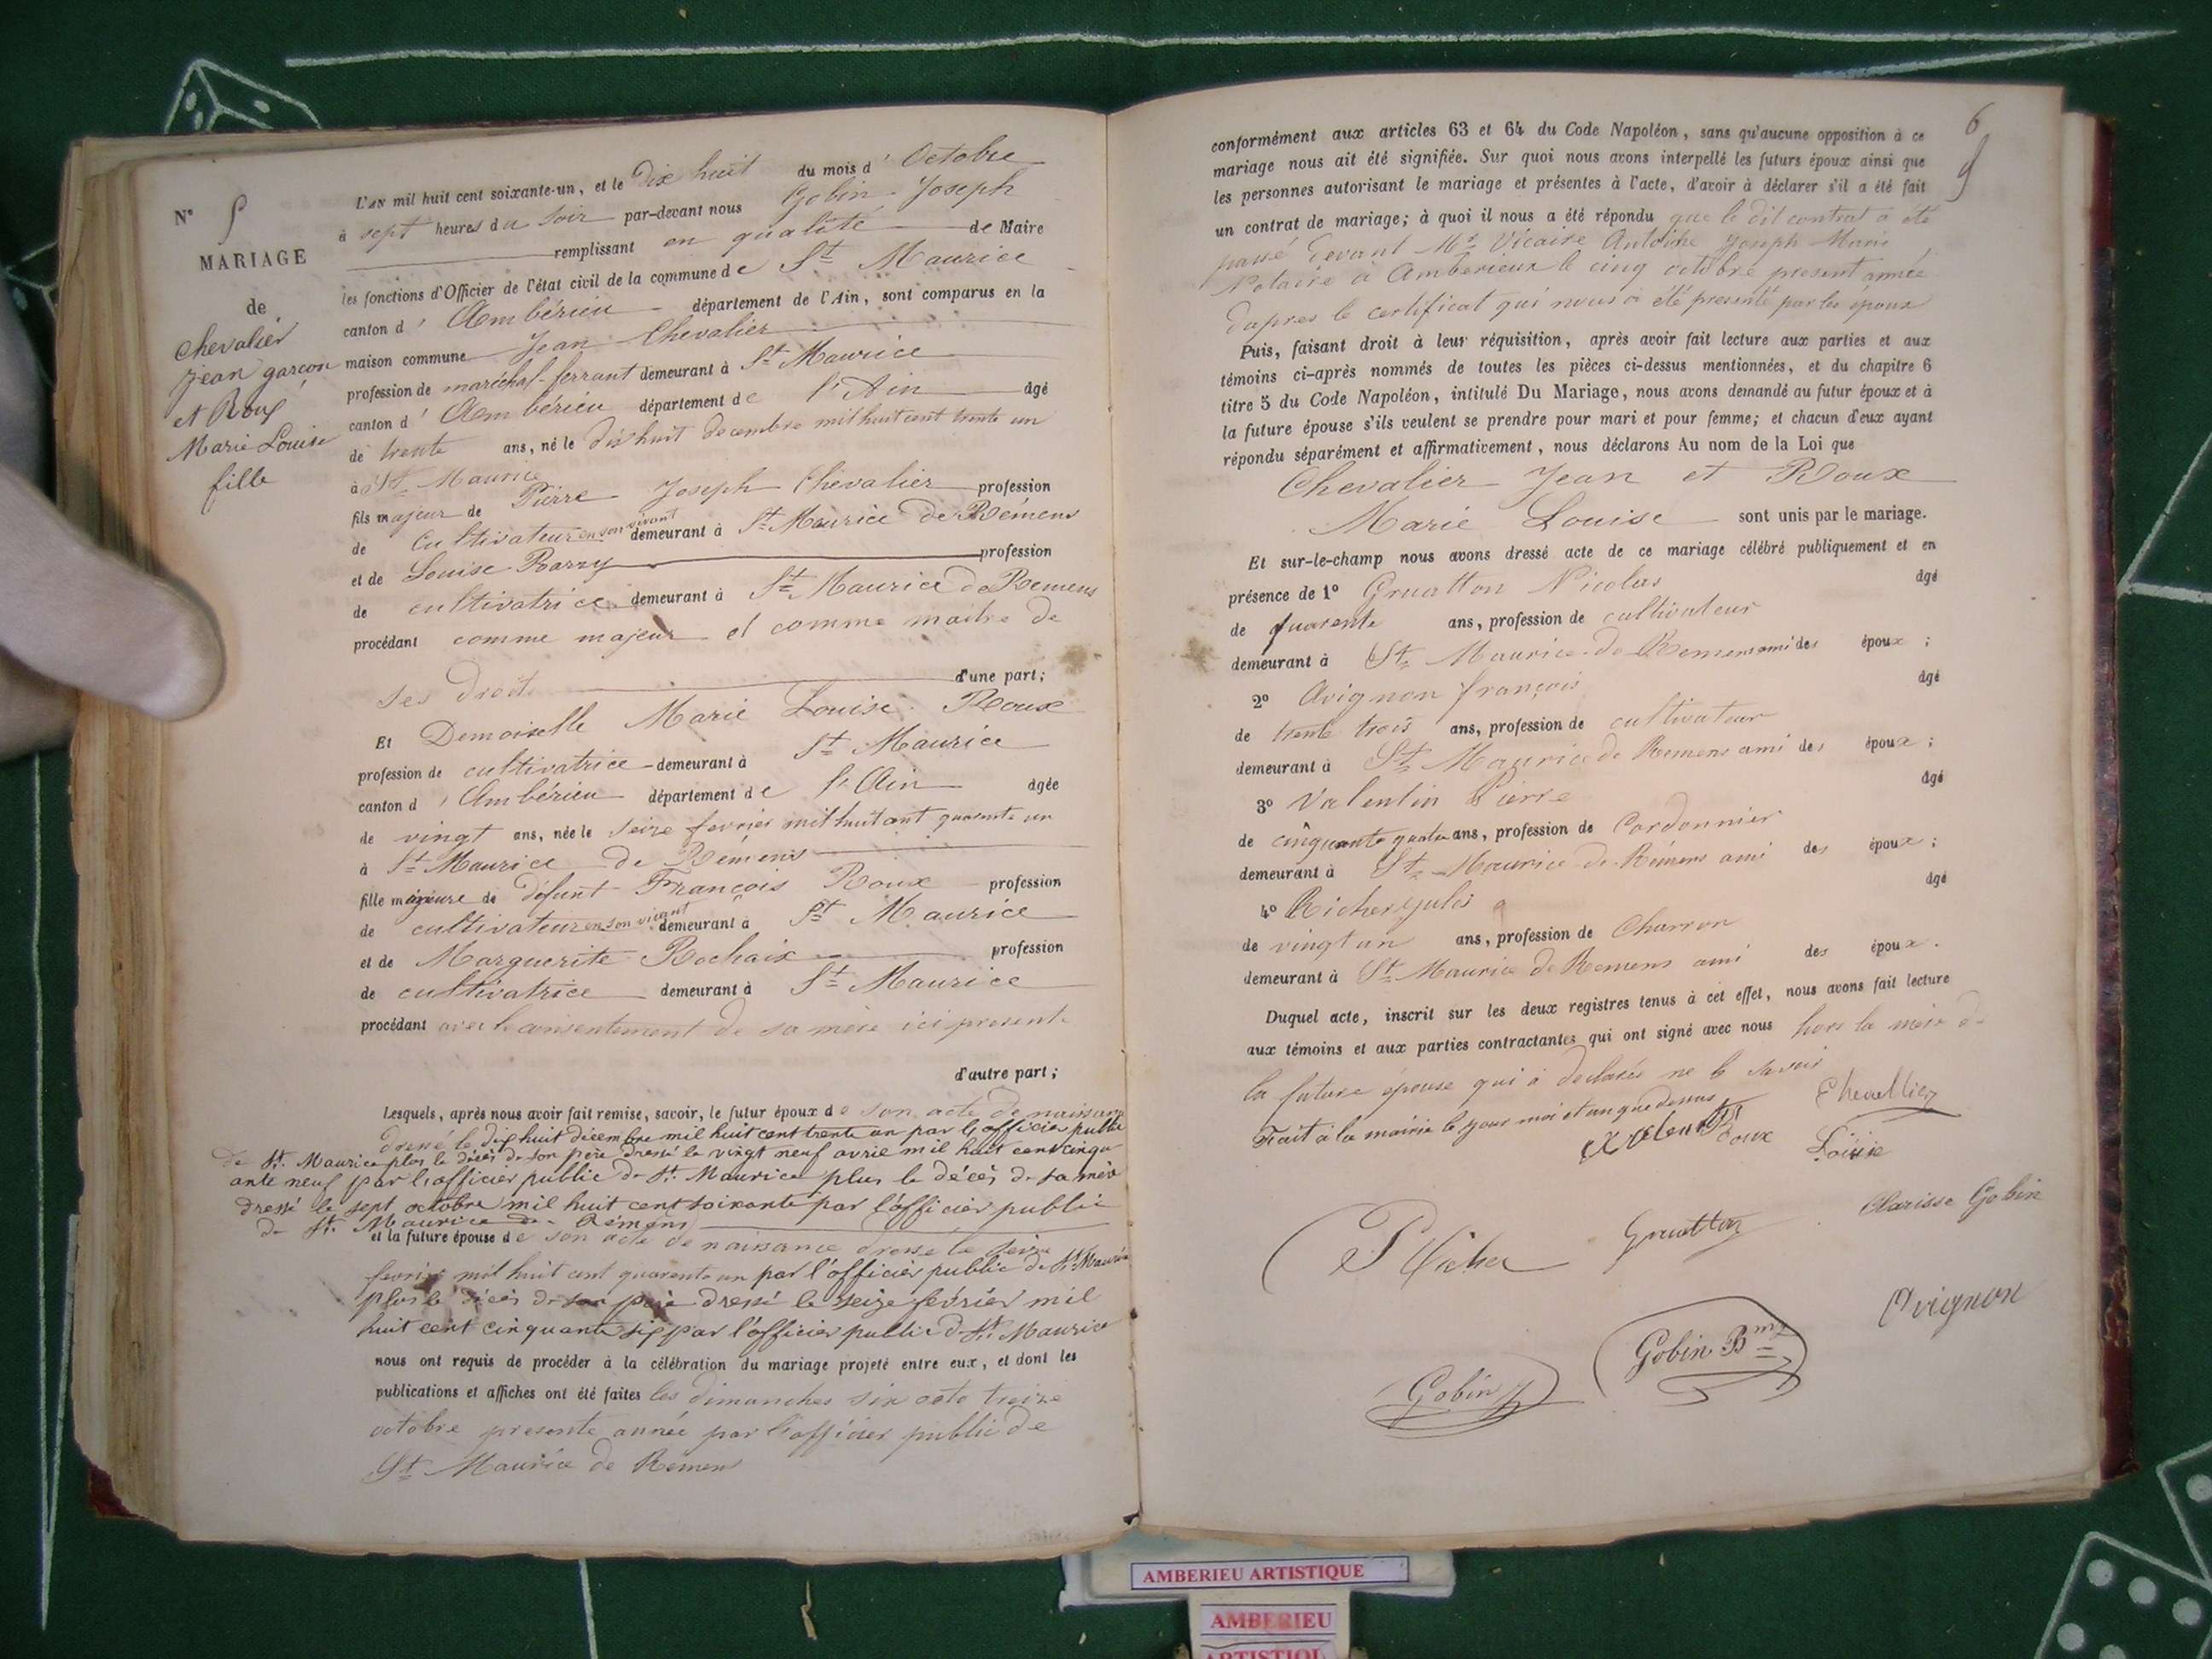 N° 5
MARIAGE
de
Chevalier
Jean garçon
et Roux
Marie Louise
fille
L'AN mil huit cent soixante-un, et le dix huit du mois d' Octobre
à sept heures du soir par-devant nous Gobin Joseph
remplissant en qualité de Maire
les fonctions d'Officier de l'état civil de la commune de St Maurice
canton d' Ambérieu département de l'Ain, sont comparus en la
maison commune Jean Chevalier
profession de maréchal-ferrant demeurant à St Maurice
canton d' Ambérieu département de l'Ain âgé
de trente ans, né le dix huit decembre mil huit cent trente un
à St Maurice
fils majeur de Pierre Joseph Chevalier profession
de Cultivateur en son vivant demeurant à St Maurice De Rémens
et de Louise Barry profession
de cultivatrice demeurant à St Maurice de Remens
procédant comme majeur et comme maître de
ses droit d'une part;
Et Demoiselle Marie Louise Roux
profession de cultivatrice demeurant à St Maurice
canton d' Ambérieu département de l'Ain âgée
de vingt ans, née le seize fevrier mil huit cent quarente un
à St Maurice de Rémens
fille majeure de défunt François Roux profession
de cultivateur en son vivant demeurant à St Maurice
et de Marguerite Rochaix profession
de cultivatrice demeurant à St Maurice
procédant avec le consentement de sa mère ici presente
d'autre part;
Lesquels, après nous avoir fait remise, savoir, le futur époux de son acte de naissance
dressé le dix huit décembre mil huit cent trente un par l'officier public
de St Maurice plus le décès de son père dressé le vingt neuf avril mil huit cent cinqu
ante neuf par l'officier public de St Maurice plus le décès de sa mère
dressé le sept octobre mil huit cent soixante par l'officier public
de St Maurice de Rémens
et la future épouse de son acte de naissance dressé le seize
fevrier mil huit cent quarente un par l'officier public de St Maurice
plus le décès de son père dressé le seize février mil
huit cent cinquante six par l'officier public de St Maurice
nous ont requis de procéder à la célébration du mariage projeté entre eux, et dont les
publications et affiches ont été faites les dimanches six et treize
octobre presente année par l'officier public de
St Maurice de Remens
6
conformément aux articles 63 et 64 du Code Napoléon, sans qu'aucune opposition à ce
mariage nous ait été signifiée. Sur quoi nous avons interpellé les futurs époux ainsi que
les personnes autorisant le mariage et présentes à l'acte, d'avoir à déclarer s'il a été fait
un contrat de mariage; à quoi il nous a été répondu que le dit contrat a été
passé devant Me Vicaire Antoine Joseph Marie
Notaire à Amberieux le cinq octobre present année
dapres le certificat qui nous a été presenté par les époux
Puis, faisant droit à leur réquisition, après avoir fait lecture aux parties et aux
témoins ci-après nommés de toutes les pièces ci-dessus mentionnées, et du chapitre 6
titre 5 du Code Napoléon, intitulé Du Mariage, nous avons demandé au futur époux et à
la future épouse s'ils veulent se prendre pour mari et pour femme; et chacun d'eux ayant
répondu séparément et affirmativement, nous déclarons Au nom de la Loi que
Chevalier Jean et Roux
Marie Louise sont unis par le mariage.
Et sur-le-champ nous avons dressé acte de ce mariage célébré publiquement et en
présence de 1° Gruatton Nicolas âgé
de quarente ans, profession de cultivateur
demeurant à St Maurice de Remens ami des époux;
2° Avignon françois âgé
de trente trois ans, profession de cultivateur
demeurant à St Maurice de Remens ami des époux;
3° Valentin Pierre âgé
de cinquante quatre ans, profession de Cordonnier
demeurant à St Maurice de Rémens ami des époux;
4° Richer Jules âgé
de vingt un ans, profession de Charron
demeurant à St Maurice de Remens ami des époux.
Duquel acte, inscrit sur les deux registres tenus à cet effet, nous avons fait lecture
aux témoins et aux parties contractantes qui ont signé avec nous hors la mère de
la future épouse qui a declarée ne le savoir
Fait à la mairie le jour moi et an que dessus
Chevallier
Roux Loüise
Clarisse Gobin
P Richer
Gruatton
Avignon
Gobin Bmy
Gobin J
AMBERIEU ARTISTIQUE
AMBERIEU